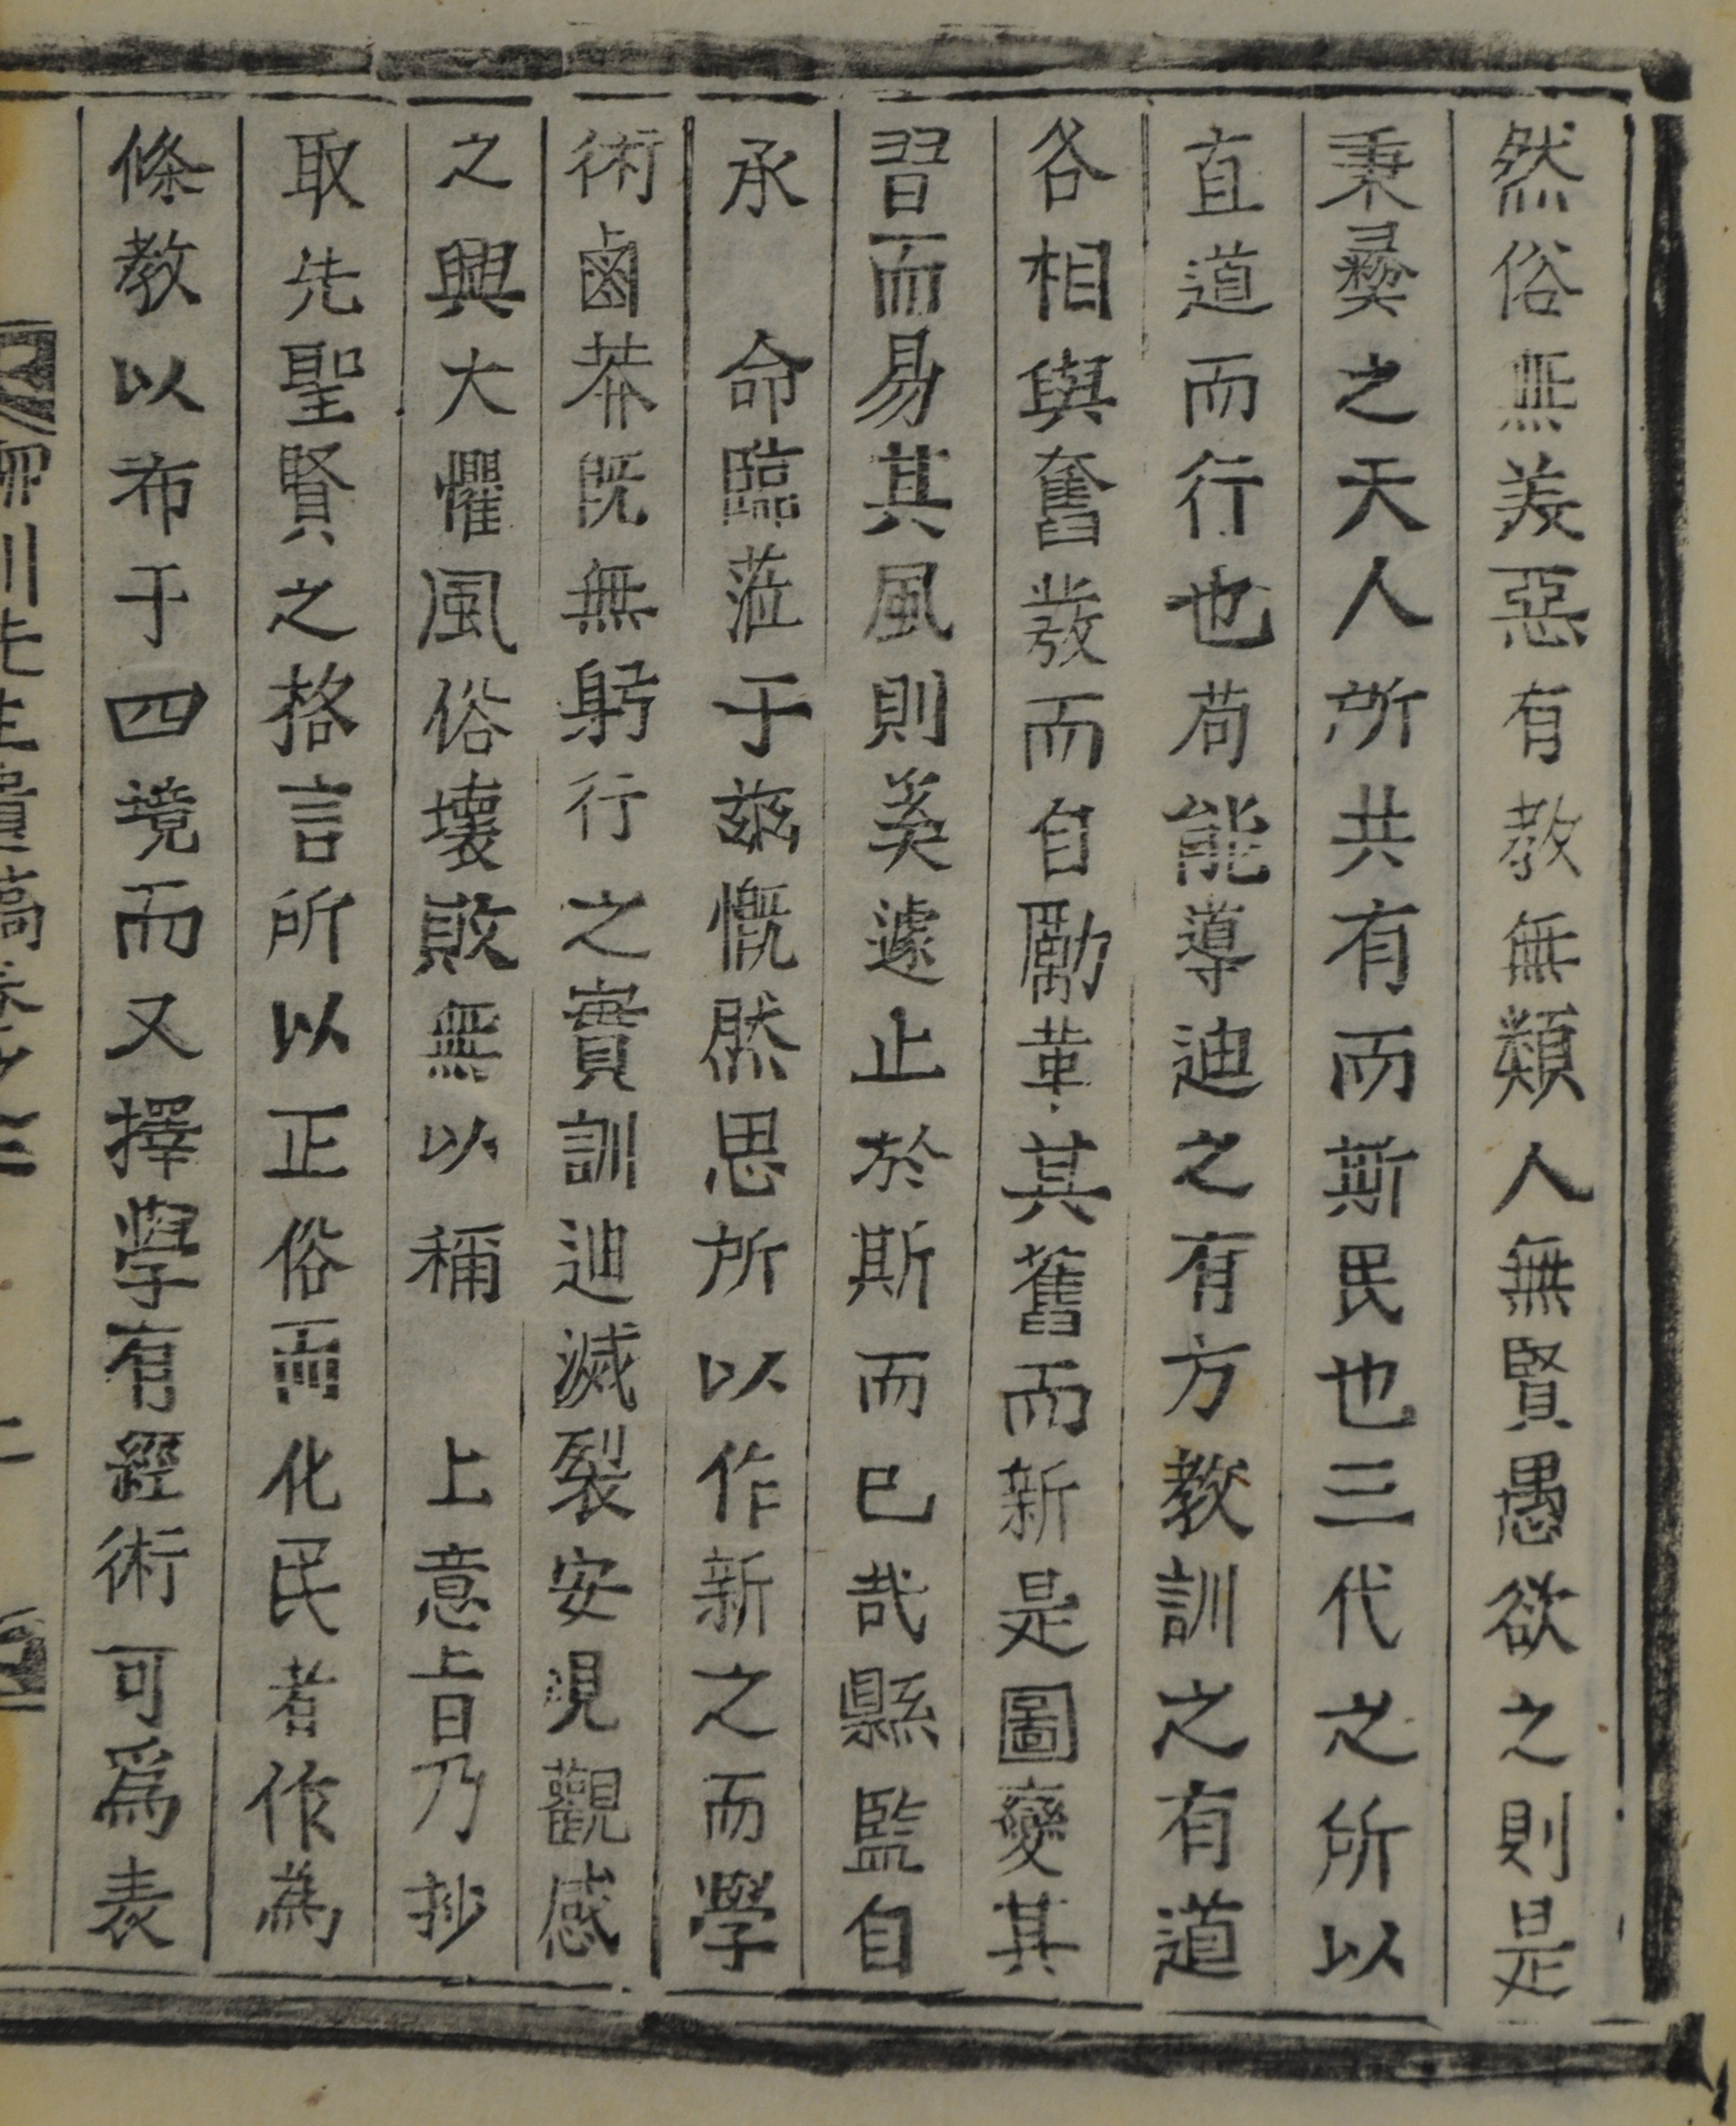 然俗無美惡有教無類人無賢愚欲之則是
秉彛之天人所共有而斯民也三代之所以
直道而行也苟能導迪之有方教訓之有道
各相與奮發而自勵革其舊而新是圖變其
習而易其風則美遽止於斯而已哉縣監自
承 命臨莅于玆慨然思所以作新之而學
術鹵莽旣無躬行之實訓迪滅裂安覌觀感
之興大懼風俗壞敗無以稱 上意旨乃抄
取先聖賢之格言所以正俗而化民者作為
條教以布于四境而又擇學有經術可爲表
川先生遺稿卷之三
二